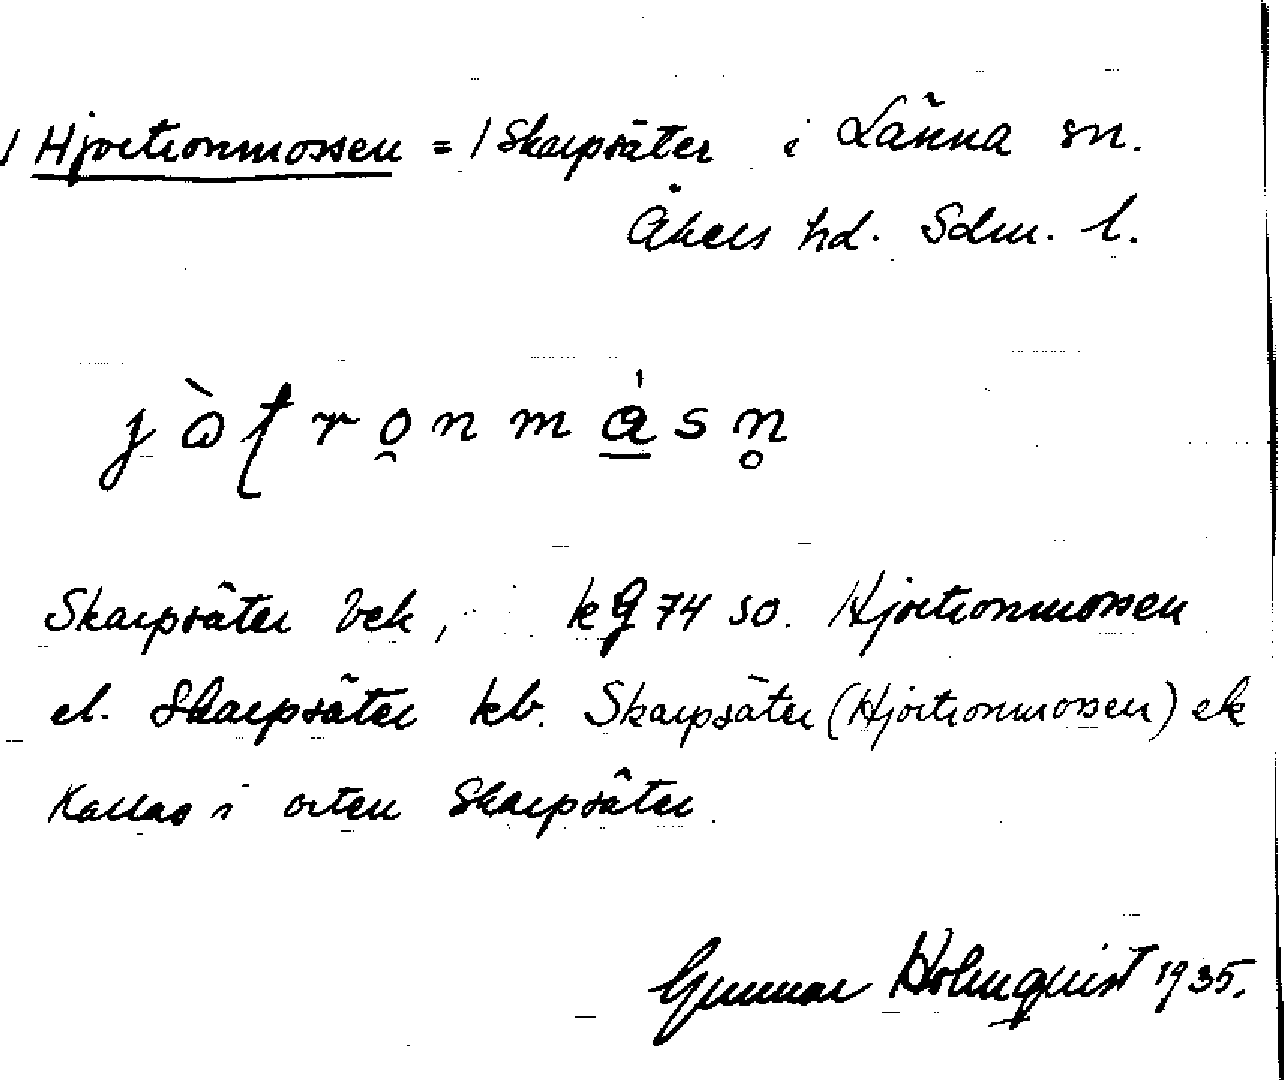 / Hjortronmossen = / Skarpsäter i Länna sn.
Åkers hd. Sdm. l.
Skarpsäter bek, kg 74 SO. Hjortronmossen
el. Skarpsäter kb. Skarpsäter (Hjortronmossen) ek
Kallas i orten Skarpsäter.
Gunnar Holmquist 1935.